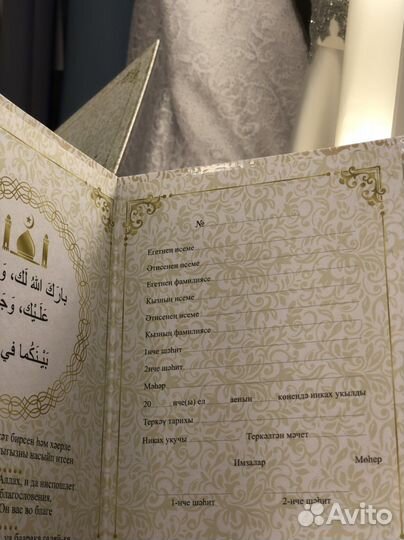 بارَكَ اللهُ لَكَ، وَ
عَلَيْكَ، وَجَ
بَيْنَكُما في
бирсен һәм хәерле
насыйп итсен
Аллах, и да ниспошлет
благословения,
Он вас во благе
№
Егетнең исеме
Әтисенең исеме
Егетнең фамилиясе
Кызның исеме
Әтисенең исеме
Кызның фамилиясе
1нче шаһит
2нче шаһит
Мәһәр
20 нче(ы) ел аеның көнендә никах укылды
Теркәү тарихы
Никах укучы Теркәлгән мәчет
Имзалар Мөһер
1-нче шаһит 2-нче шаһит
Avito